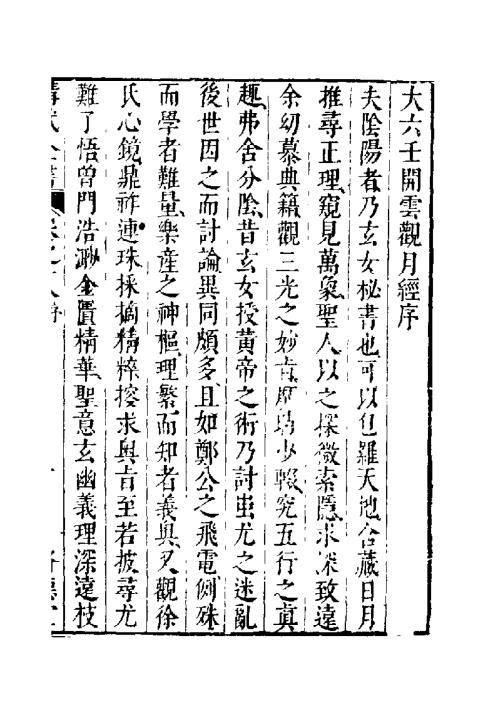 大六壬開雲觀月經序
夫陰陽者乃玄女秘書也可以包羅天地含藏日月
推尋正理窺見萬象聖人以之探微索隱求深致遠
余幼慕典籍觀三光之妙旨靡嘗少輟究五行之真
趣弗舍分陰昔玄女授黄帝之術乃討蚩尤之迷亂
後世因之而討論異同頗多且如鄭公之飛電側殊
而學者難量樂産之神樞理繁而知者義與又觀徐
氏心鏡鼎祚連珠採摘精粹挖求奥旨至若披尋尤
難了悟曾門浩渺金匱精華聖意玄幽義理深遠枝